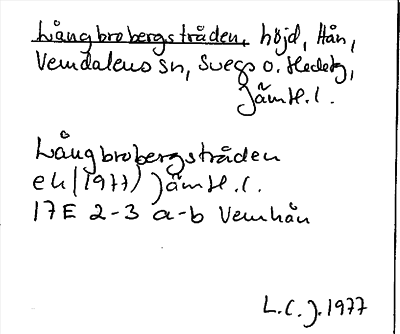 Långbrobergsstråden, höjd, Hån,
Vemdalens sn, Svegs o. Hedets,
Jämtl. l.
Långbrobergsstråden
ek (1977) Jämtl. l.
17E 2-3 a-b Vemhån
L.C.J. 1977